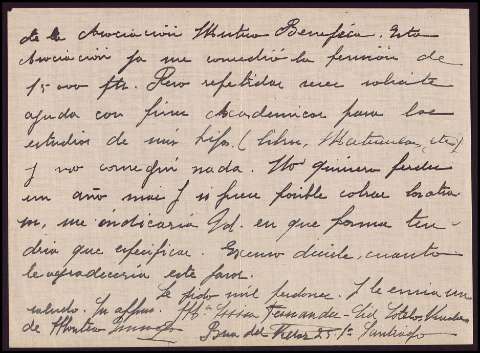 de la Asociación Mutua Benéfica. Esta
Asociación ya me concedió la pensión de
15000 pts. Pero repetidas veces solicité
ayuda con fines Academicos para los
estudios de mis hijos. (libros, Matriculas, etc)
y no conseguí nada. No quisiera perder
un año mas y si fuese posible cobrar los atra
me indicaría Vd. en que forma ten-
dria que especificar. Excuso decirle, cuanto
le agradeceria este favor.
Le pido mil perdones. Y le envia un
saludo. Su affma. Mª Fernandez-Cid
de Rua del 25-1º Santiago